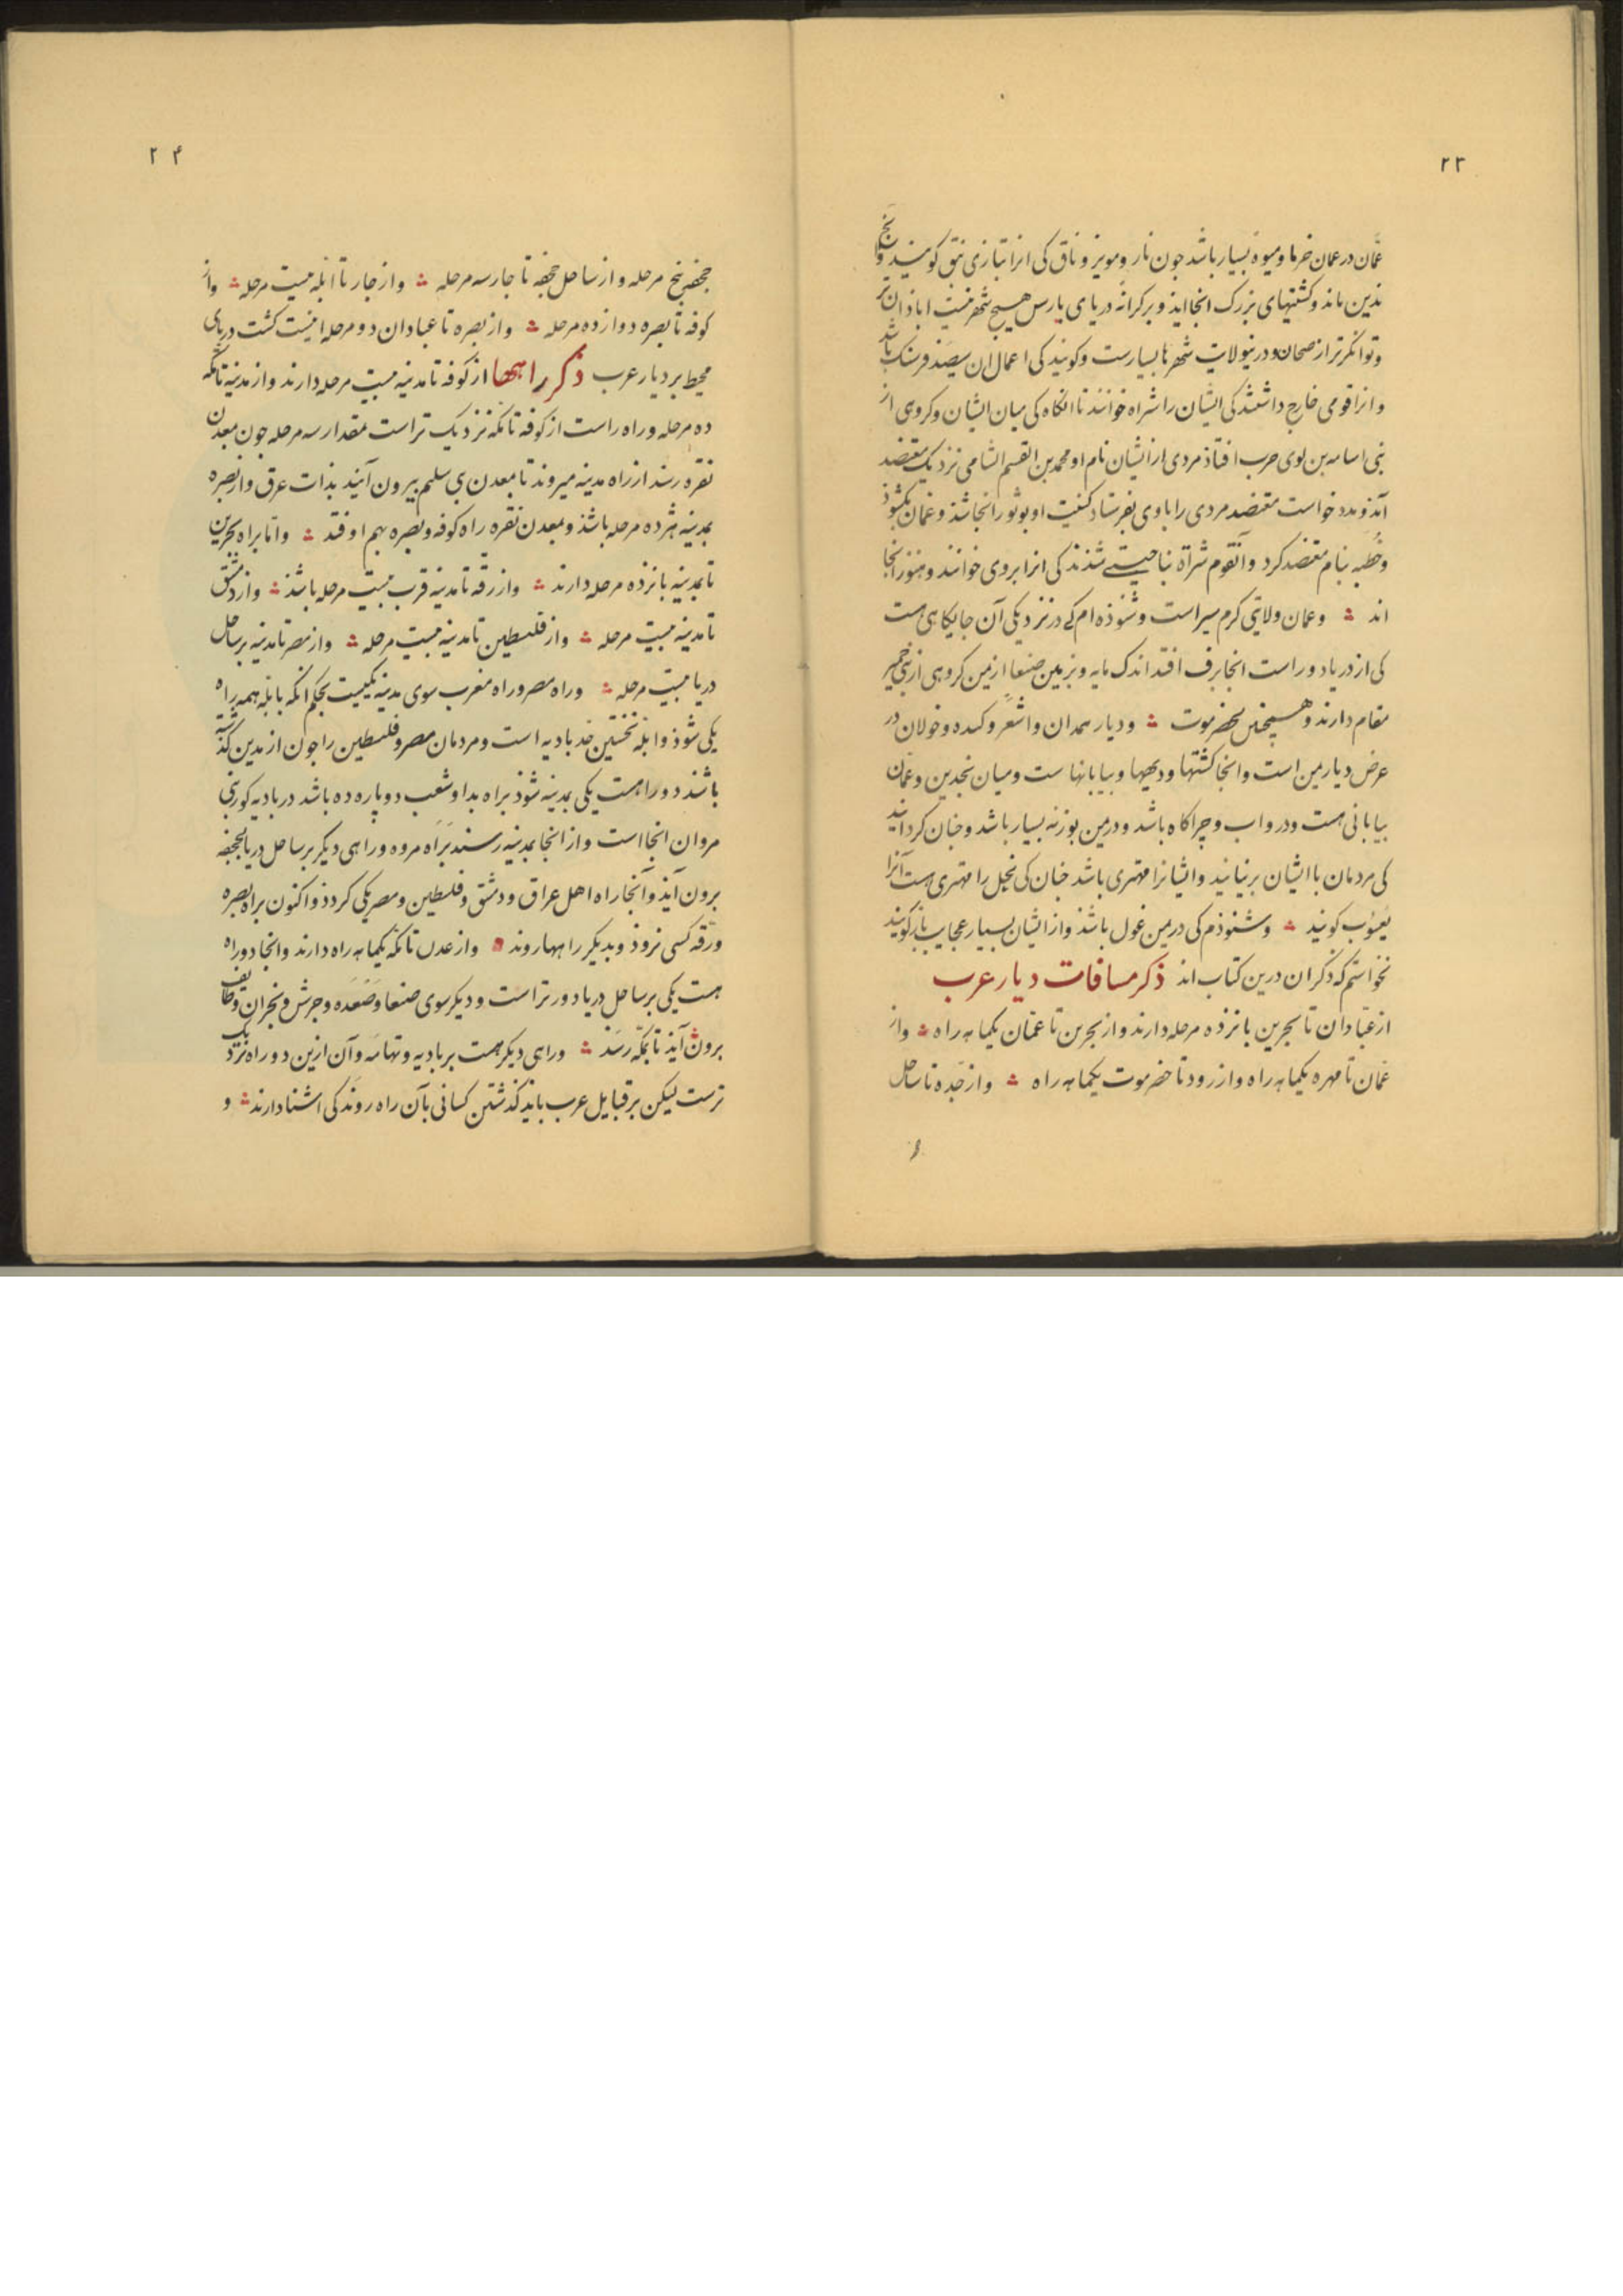 ۲۳
عمّان در عمان خرما و میوه بسیار باشد جون نار و مویز و ناق کی انرا بتازی نبق کویند و بنج
بدین ماند و کشتیهای بزرک انجا ایذ و برکرانه دریای پارس هیچ شهر نیست اباذان تر
و توانکرتر از صحان و درین ولایت شهرها بسیارست و کویند کی اعمال ان سیصد فرسنک باشد
و انرا قومی خارج داشتند کی ایشان را شراه خوانند تا انکاه کی میان ایشان و کروهی از
بنی اسامه بن لوی حرب افتاذ مردی از ایشان نام او محمد بن القسم الشامی نزدیک معتضد
آمذ و مدد خواست معتضد مردی را با وی بفرستاد کنیت او بوثور انجا شذ و عمان بکشوذ
و خطبه بنام معتضد کرد و آنقوم شراة بناحیتی شذند کی انرا بروی خوانند و هنوز انجا
اند ؞ و عمان ولایتی کرم سیر است و شنوذه ام کی در نزدیکی آن جایکاهی هست
کی از دریا دور است انجا برف افتد اندک مایه و بزمین صنعا از یمن کروهی از بنی حمیر
مقام دارند و همچنین بحضرموت ؞ و دیار همدان و اشعر و کنده و خولان در
عرض دیار یمن است و انجا کشتها و دیهها و بیابانها ست و میان نجد یمن و عمّان
بیابانی هست و در و اب و چراکاه باشد و در یمن بوزنه بسیار باشد و جنان کرد ایند
کی مردمان با ایشان برنیانید و ایشانرا مهتری باشد جنان کی نحل را مهتری هست آنرا
یعسوب کویند ؞ و شنوذم کی در یمن غول باشد و از ایشان بسیار عجایب باز کویند
نخواستم که ذکر ان درین کتاب اند ذکر مسافات دیار عرب
از عبّادان تا بحرین بانزده مرحله دارند و از بحرین تا عمّان یکماهه راه ؞ و از
عمان تا مهره یکماهه راه و از رود تا حضرموت یکماهه راه ؞ و از جدّه تا ساحل
۲۴
جحفه بنج مرحله و از ساحل جحفه تا جار سه مرحله ؞ و از جار تا ابله بیست مرحله ؞ و از
کوفه تا بصره دوازده مرحله ؞ و از بصره تا عبادان دو مرحله اینست کشت دریای
محیط بر دیار عرب ذکر راهها از کوفه تا مدینه بیست مرحله دارند و از مدینه تا مکه
ده مرحله و راه راست از کوفه تا مکه نزدیک تر است بمقدار سه مرحله جون بمعدن
نقره رسند از راه مدینه میروند تا معدن بی سلیم بیرون آیند بذات عرق و از بصره
بمدینه هژده مرحله باشذ و بمعدن نقره راه کوفه و بصره بهم اوفتد ؞ و امّا براه بحرین
تا مدینه بانزده مرحله دارند ؞ و از رقه تا مدینه قرب بیست مرحله باشذ ؞ و از دمشق
تا مدینه بیست مرحله ؞ و از فلسطین تا مدینه بیست مرحله ؞ و از مصر تا مدینه بر ساحل
دریا بیست مرحله ؞ و راه مصر و راه مغرب سوی مدینه یکیست بحکم انکه بابله همه راه
یکی شوذ و ابله نخستین حد بادیه است و مردمان مصر و فلسطین را جون از مدین کذشته
باشند دو راهست یکی بمدینه شوذ براه بدا و شعب دو پاره ده باشد در بادیه کور بنی
مروان انجا است و از انجا بمدینه رسند براه مروه و راهی دیکر بر ساحل دریا بجحفه
برون آیذ و آنجا راه اهل عراق و دمشق و فلسطین و مصر یکی کردذ و اکنون براه بصره
و رقه کسی نروذ و بدیکر راهها روند ؞ و از عدن تا مکه یکماهه راه دارند و انجا دو راه
هست یکی بر ساحل دریا دورتر است و دیکر سوی صنعا و صعده و جرش و نجران و طایف
برون آیذ تا بمکّه رسذ ؞ و راهی دیکر هست بر بادیه و تهامه و آن ازین دو راه نزدیک
ترست لیکن بر قبایل عرب بایذ کذشتن کسانی بآن راه روند کی اشنا دارند ؞ و